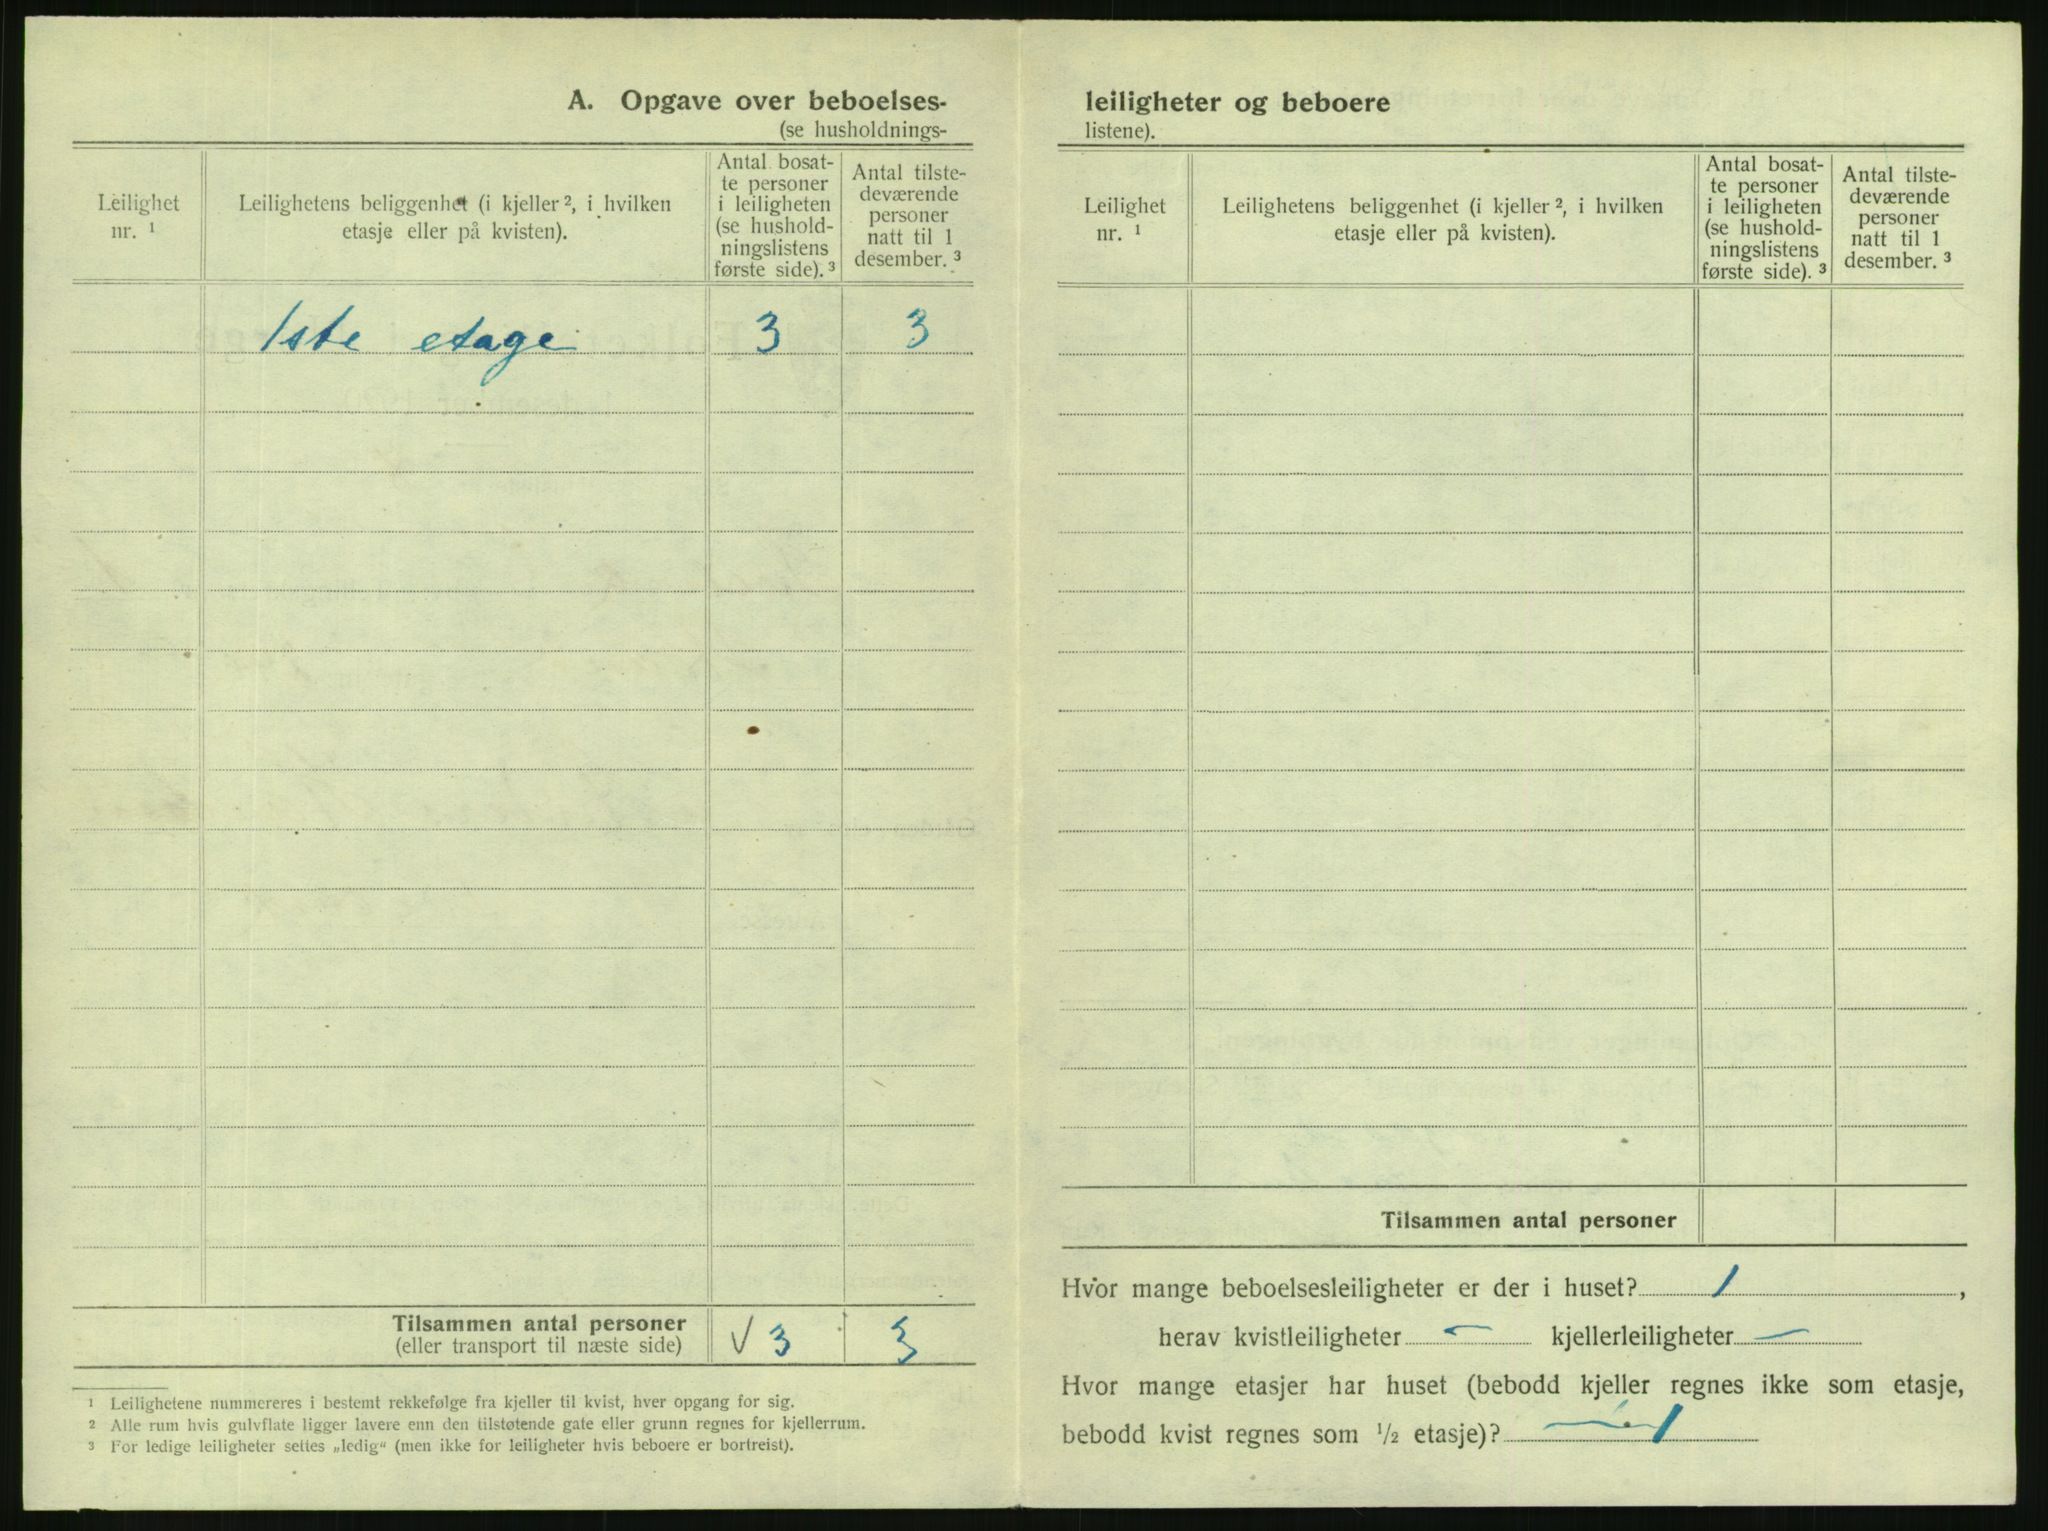 A. Opgave over beboelses-
(se husholdnings-
Leilighet
nr. 1
Leilighetens beliggenhet (i kjeller 2, i hvilken
etasje eller på kvisten).
Antal bosat-
te personer
i leiligheten
(se hushold-
ningslistens
første side). 3
Antal tilste-
deværende
personer
natt til 1
desember. 3
1ste etage 3 3
Tilsammen antal personer
(eller transport til næste side)
√ 3 3
1 Leilighetene nummereres i bestemt rekkefølge fra kjeller til kvist, hver opgang for sig.
2 Alle rum hvis gulvflate ligger lavere enn den tilstøtende gate eller grunn regnes for kjellerrum.
3 For ledige leiligheter settes „ledig“ (men ikke for leiligheter hvis beboere er bortreist).
leiligheter og beboere
listene).
Leilighet
nr. 1
Leilighetens beliggenhet (i kjeller 2, i hvilken
etasje eller på kvisten).
Antal bosat-
te personer
i leiligheten
(se hushold-
ningslistens
første side). 3
Antal tilste-
deværende
personer
natt til 1
desember. 3
Tilsammen antal personer
Hvor mange beboelsesleiligheter er der i huset? 1,
herav kvistleiligheter — kjellerleiligheter —
Hvor mange etasjer har huset (bebodd kjeller regnes ikke som etasje,
bebodd kvist regnes som 1/2 etasje)? 1